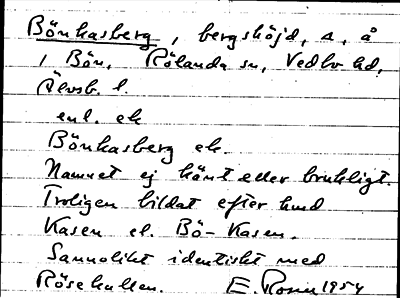 Bönkasberg, bergshöjd, a. å
i Bön, Rölanda sn, Vedbo hd,
Älvsb. l.
enl. ek
Bönkasberg ek.
Namnet ej känt eller brukligt.
Troligen bildat efter
Kasen el. Bö-Kasen.
Sannolikt identiskt med
Rösekullen. E. Rosen 1954